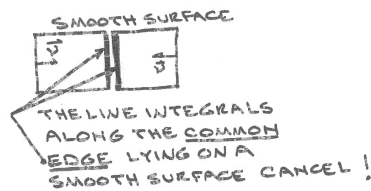 SMOOTH SURFACE
v⃗ v⃗
THE LINE INTEGRALS
ALONG THE COMMON
EDGE LYING ON A
SMOOTH SURFACE CANCEL!